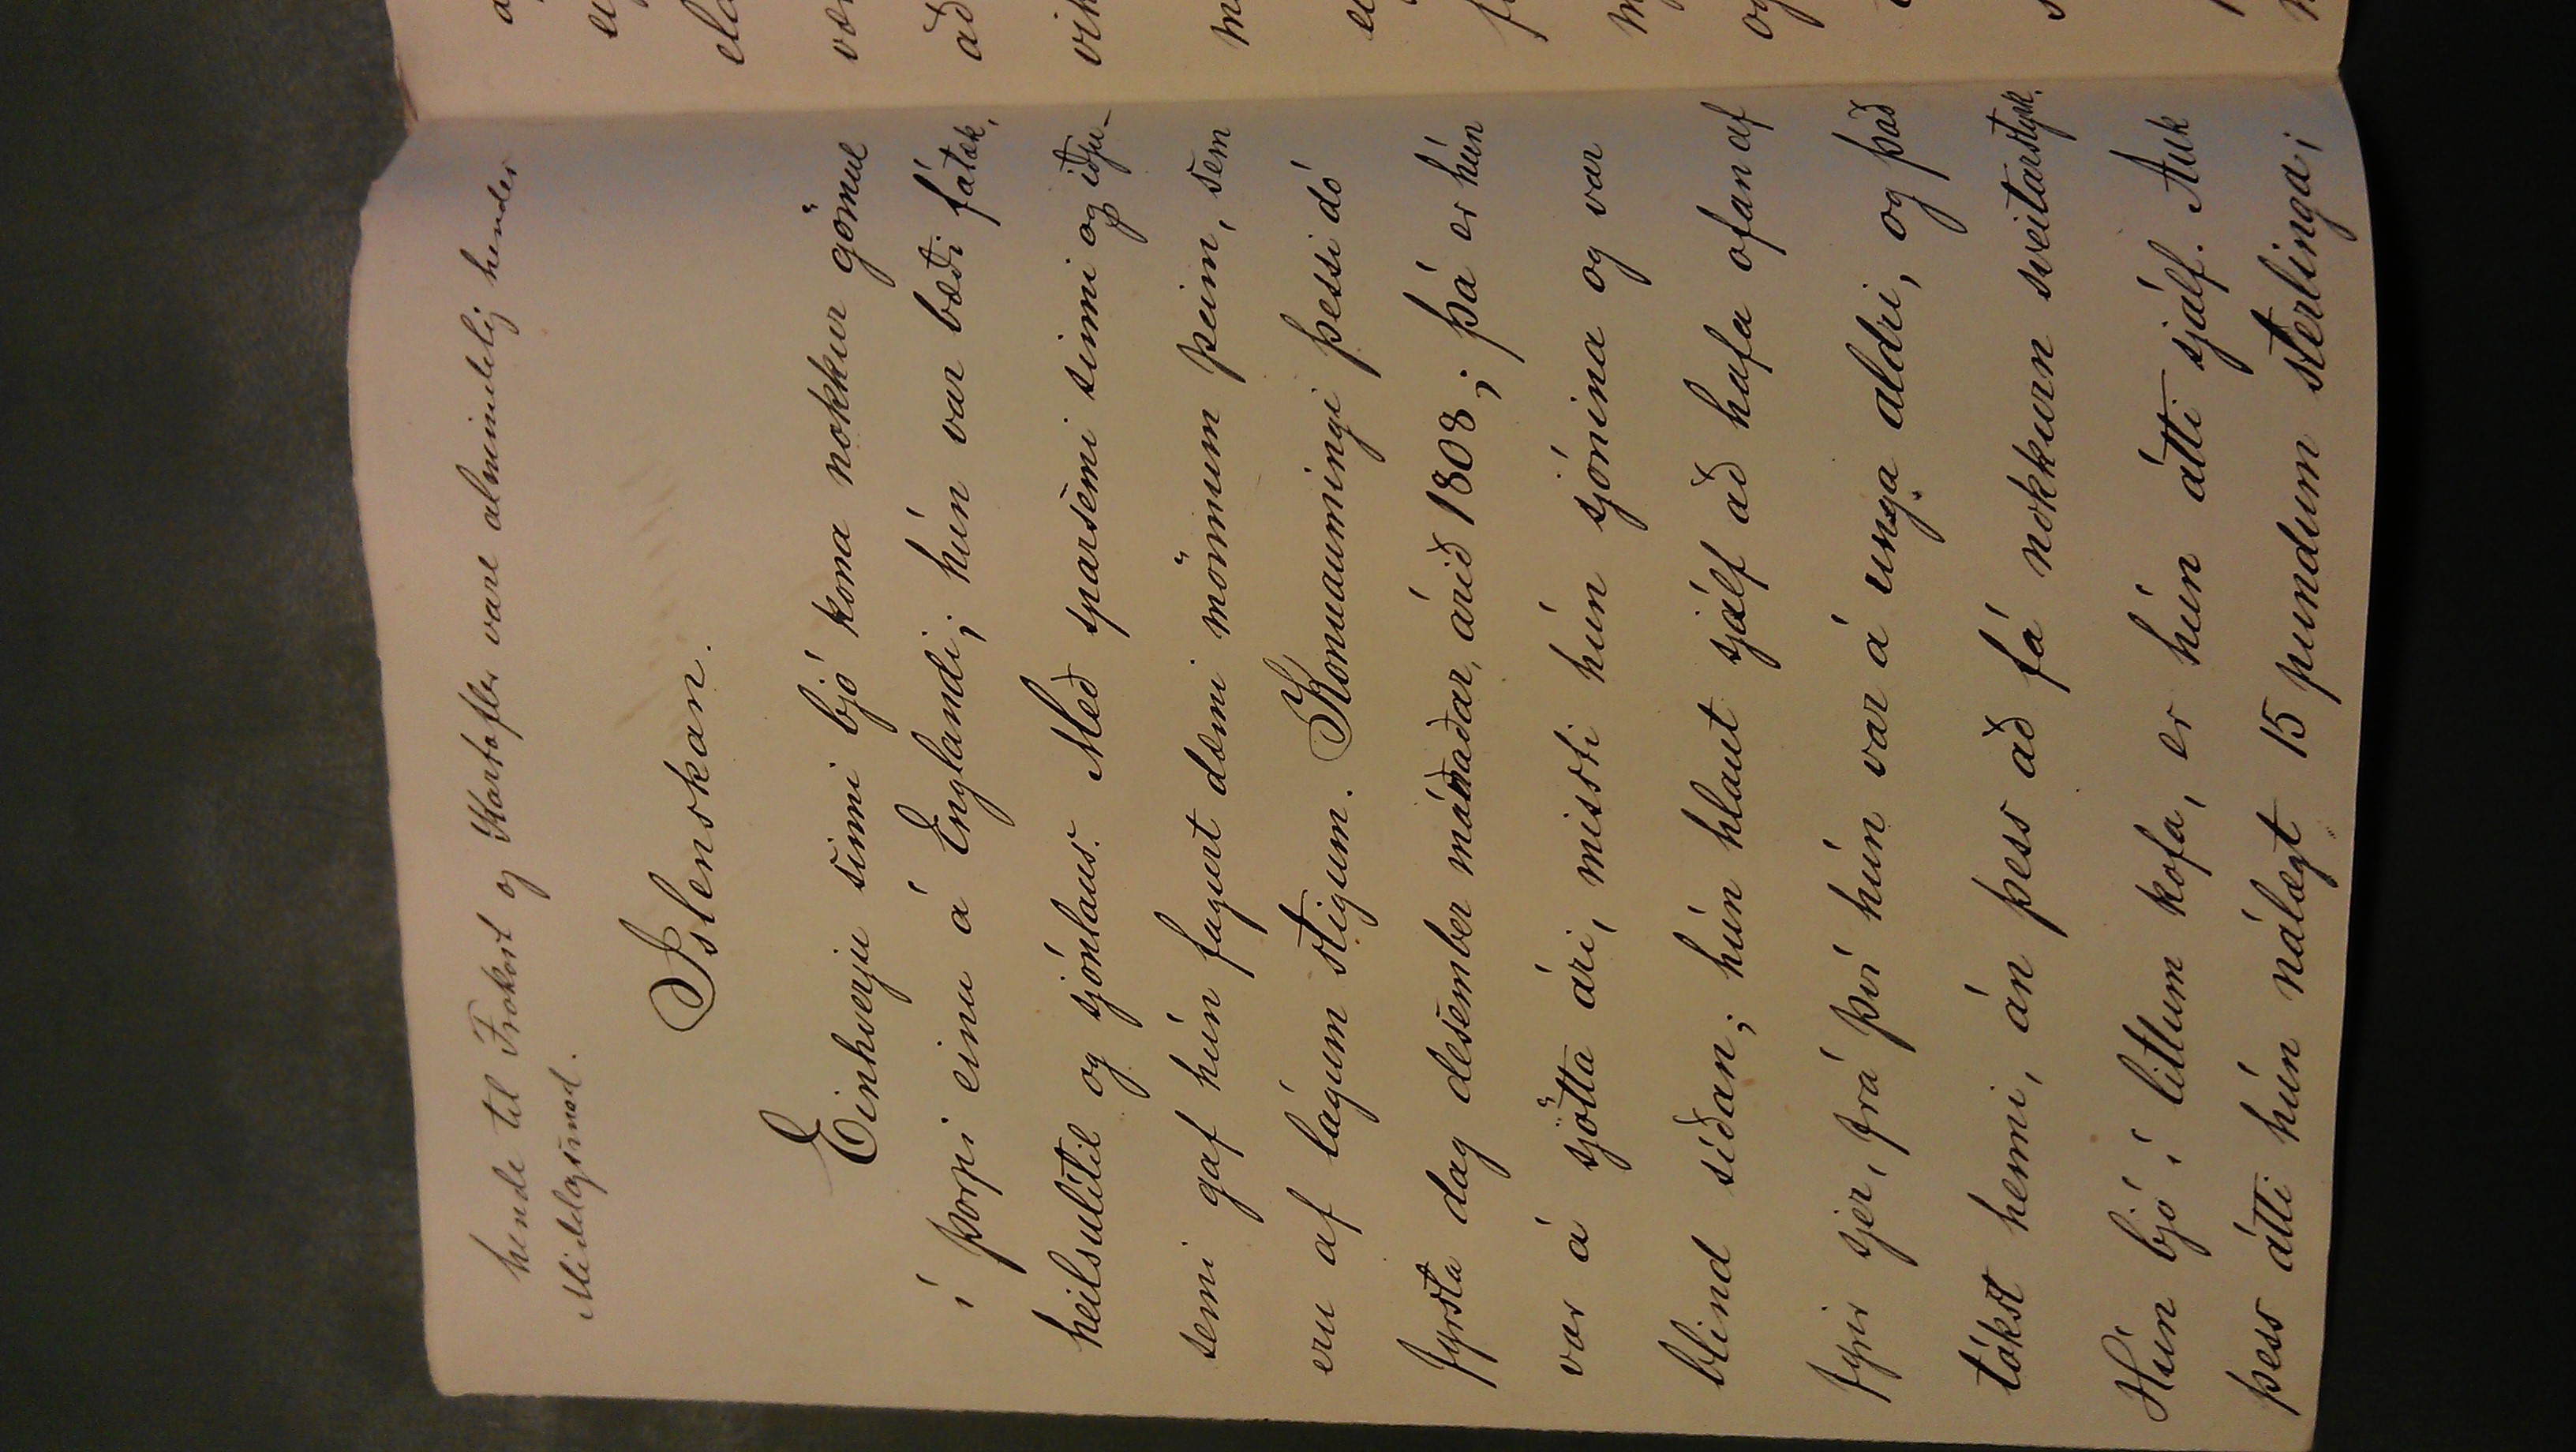 hende til Frokost og Kartofler vare almindelig hendes
Middagsmad.
Islenskan.
Einhverju sinni bjó kona nokkur gömul
í þorpi einu á Englandi; hún var bæði fátæk,
heilsulítil og sjónlaus. Með sparsemi sinni og iðju-
semi gaf hún fagurt dæmi mönnum þeim, sem
eru af lágum stigum. Konuaumingi þessi dó
fyrsta dag desember mánaðar, árið 1808; þá er hún
var á sjötta ári, missti hún sjónina og var
blind síðan; hún hlaut sjálf að hafa ofan af
fyrir sjer, frá því hún var á unga aldri, og það
tókst henni, án þess að fá nokkurn sveitarstyrk.
Hún bjó í litlum kofa, er hún átti sjálf. Auk
þess átti hún nálægt 15 pundum sterlinga;